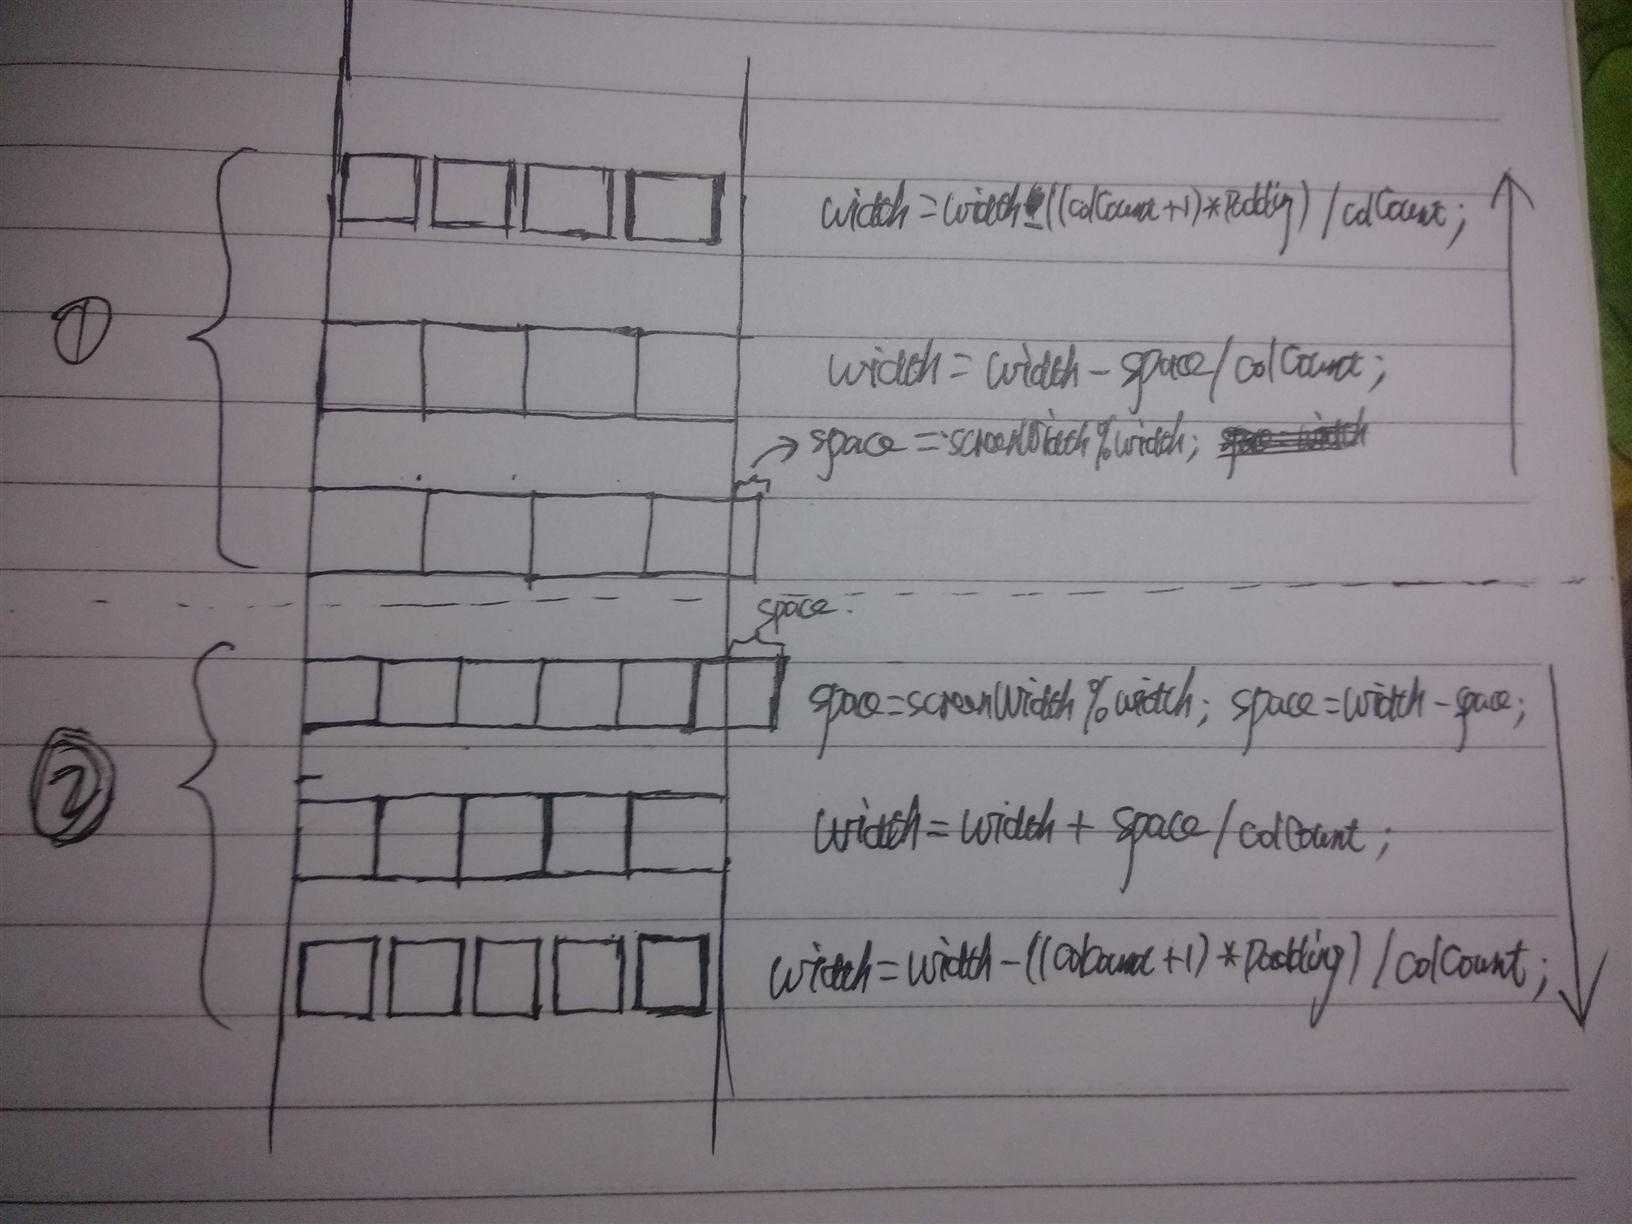 ①
width = width - ((colCount+1)*Padding) / colCount;
width = width - space / colCount;
space = screenWidth % width;
space
②
space = screenWidth % width; space = width - space;
width = width + space / colCount;
width = width - ((colCount+1) * Padding) / colCount;